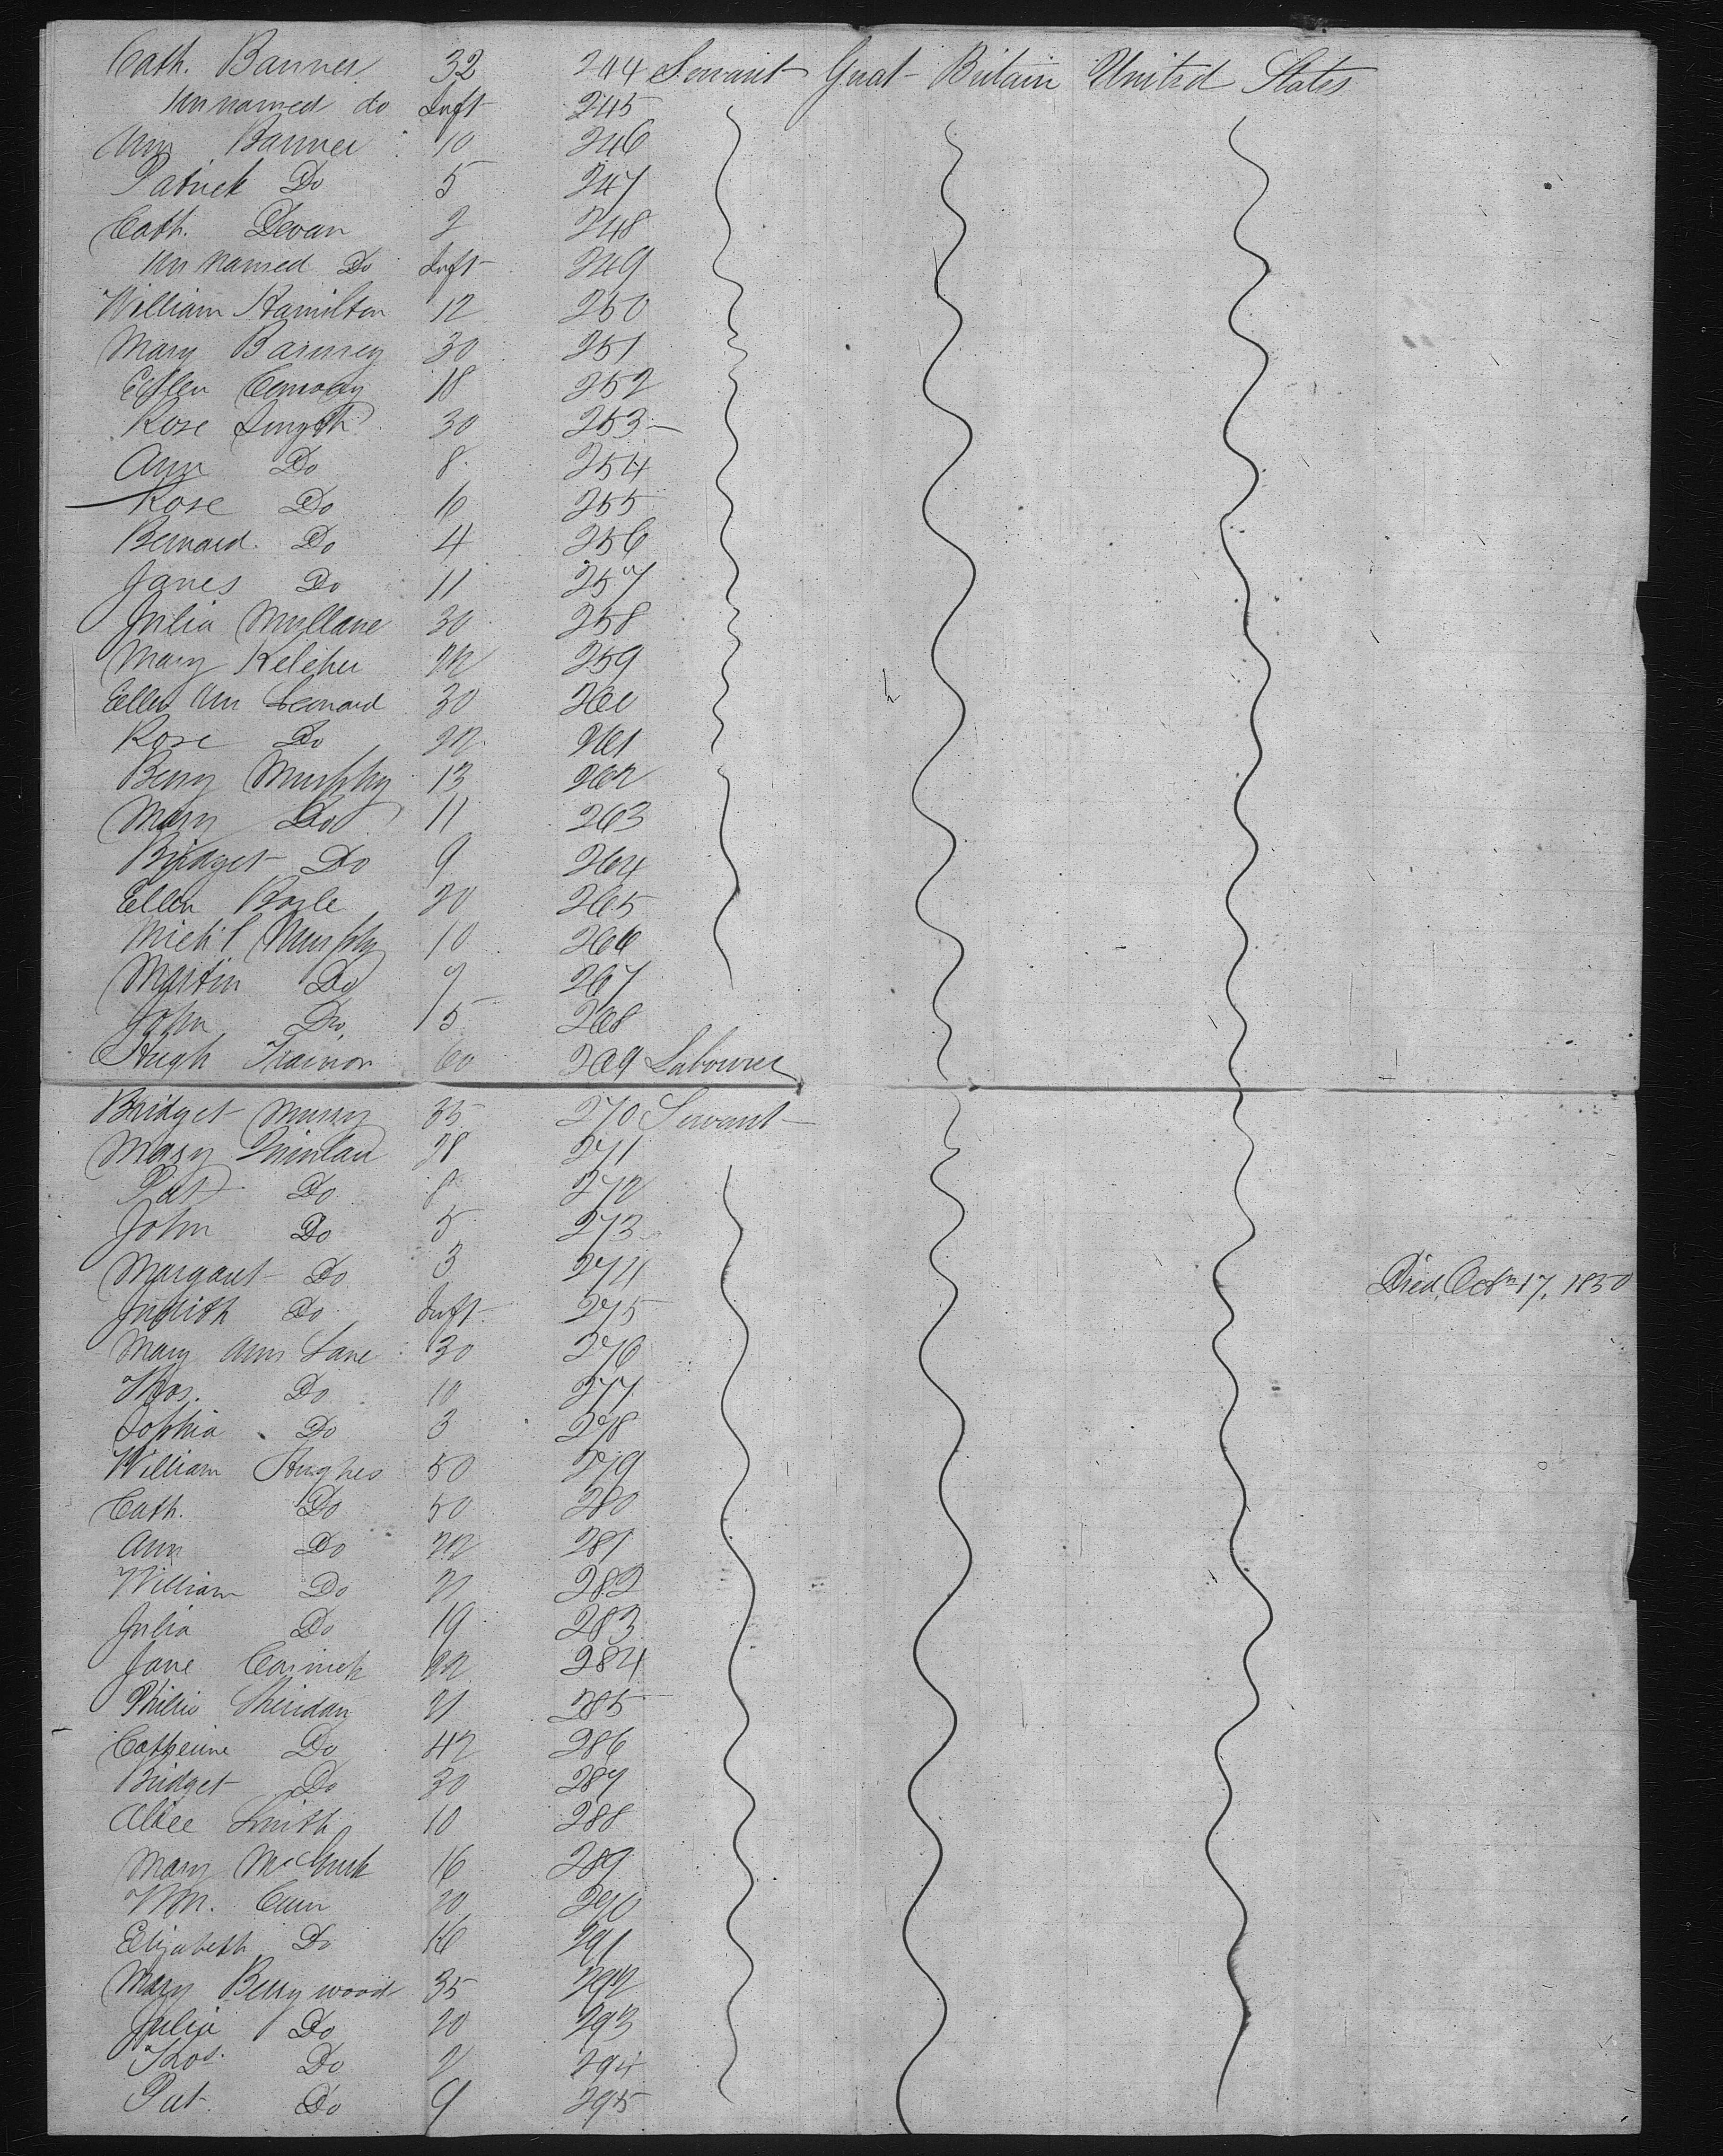 Cath. Banner 32 244 Servant Great Britain United States
Unnamed do Inft 245
Ann Banner 10 246
Patrick Do 5 247
Cath. Devan 2 248
Unnamed Do Inft 249
William Hamilton 12 250
Mary Barnsey 30 251
Ellen Conroy 18 252
Rose Smyth 30 253
Ann Do 8 254
Rose Do 6 255
Bernard Do 4 256
James Do 11 257
Julia Mullane 30 258
Mary Keleher 22 259
Ellen Ann Leonard 30 260
Rose Do 22 261
Berry Murphy 13 262
Mary Do 11 263
Bridget Do 9 264
Ellen Boyle 20 265
Mich'l Murphy 10 266
Martin Do 9 267
John Do 5 268
Hugh Trainor 60 269 Labourer
Bridget Murry 35 270 Servant
Mary Quinlan 28 271
Pat Do 8 272
John Do 5 273
Margaret Do 3 274 Died Octr 17, 1850
Judith Do Inft 275
Mary Ann Lane 30 276
Thos. Do 10 277
Sophia Do 3 278
William Hughes 50 279
Cath. Do 50 280
Ann Do 22 281
William Do 21 282
Julia Do 19 283
Jane 22 284
Philip Sheridan 21 285
Catherine Do 42 286
Bridget Do 30 287
Alice Smith 10 288
Mary McGurk 16 289
Wm. Cunn 20 290
Elizabeth Do 16 291
Mary Berrywood 35 292
Julia Do 20 293
Thos. Do 294
Pat. Do 9 295